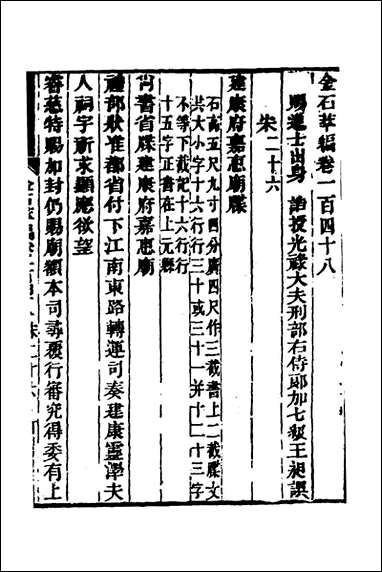 金石萃編卷一百四十八
賜進士出身 誥授光祿大夫刑部右侍郎加七級王昶譔
宋二十六
建康府嘉惠廟牒
石高五尺九寸四分廣四尺作三截書上二截牒文
共大小字十六行行三十或三十一并十二十三字
不等下截記十六行行
十五字正書在上元縣
尚書省牒建康府嘉惠廟
禮部狀准都省付下江南東路轉運司奏建康靈澤夫
人祠宇祈求顯應欲望
睿慈特賜加封仍賜廟額本司尋覆行審究得委有上